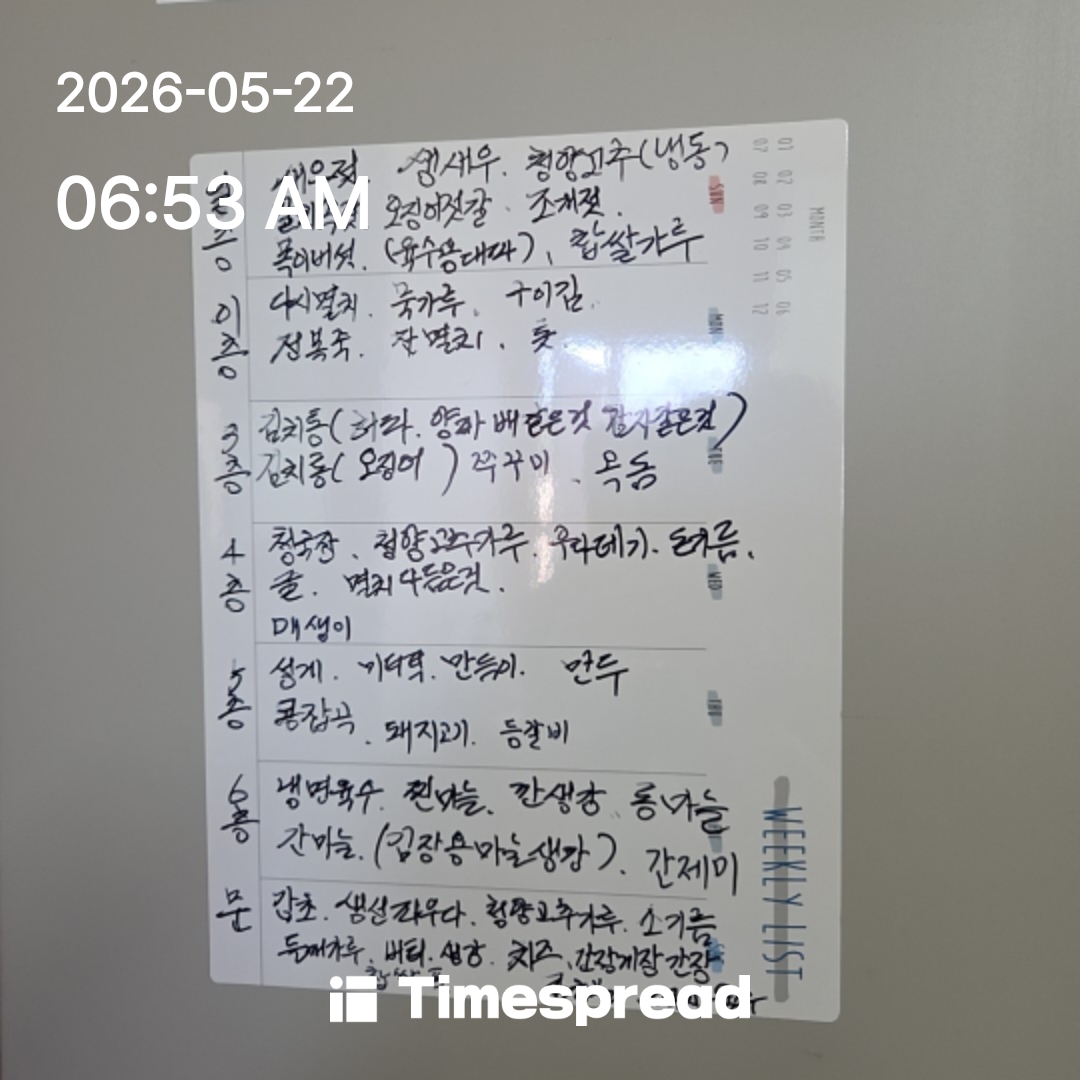 2026-05-22
06:53 AM
새우젓 생새우. 청양고추(냉동)
오징어젓갈. 조개젓.
목이버섯. (육수용대파), 찹쌀가루
이층
다시멸치. 묵가루. 구이김.
전복죽. 잔멸치. 톳.
3층
김치통( 양파 배같은것 감자같은것)
김치통(오징어) 쭈꾸미. 옥돔
4층
청국장. 청양고추가루. 들기름.
굴. 멸치다듬은것.
매생이
5층
성게. 미더덕. 만두
콩잡곡. 돼지고기. 등갈비
6층
냉면육수. 찐마늘. 깐생강. 통마늘
간마늘. (김장용마늘생강). 간제미
문
감초. 생선 청양고추가루. 소기름
버터. 생강. 치즈. 간장게장간장
MONTH
01 02 03 04 05 06
07 08 09 10 11 12
SUN
MON
TUE
WED
THU
WEEKLY LIST
Timespread